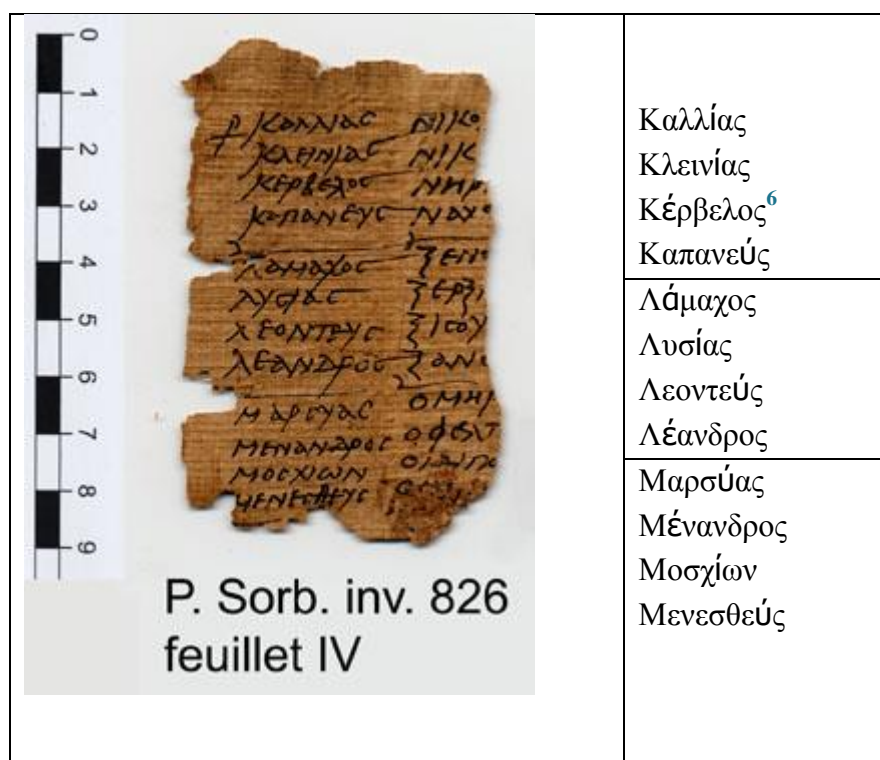 0
1
2
3
4
5
6
7
8
9
ⲣ ΚΑΛΛΙΑϹ ΝΙΚΟ
ΚΛΕΙΝΙΑϹ ΝΙΚ
ΚΕΡΒΕΛΟϹ ΝΗΡ
ΚΑΠΑΝΕΥϹ
ΛΑΜΑΧΟϹ ΞΕΝ
ΛΥϹΙΑϹ ΞΕΡΞ
ΛΕΟΝΤΕΥϹ
ΛΕΑΝΔΡΟϹ ΞΑΝ
ΜΑΡϹΥΑϹ ΟΜΗΡ
ΜΕΝΑΝΔΡΟϹ ΟΦΕΛΤ
ΜΟϹΧΙΩΝ ΟΙΔΙΠΟ
ΜΕΝΕϹΘΕΥϹ
P. Sorb. inv. 826
feuillet IV
Καλλίας
Κλεινίας
Κέρβελος⁶
Καπανεύς
Λάμαχος
Λυσίας
Λεοντεύς
Λέανδρος
Μαρσύας
Μένανδρος
Μοσχίων
Μενεσθεύς